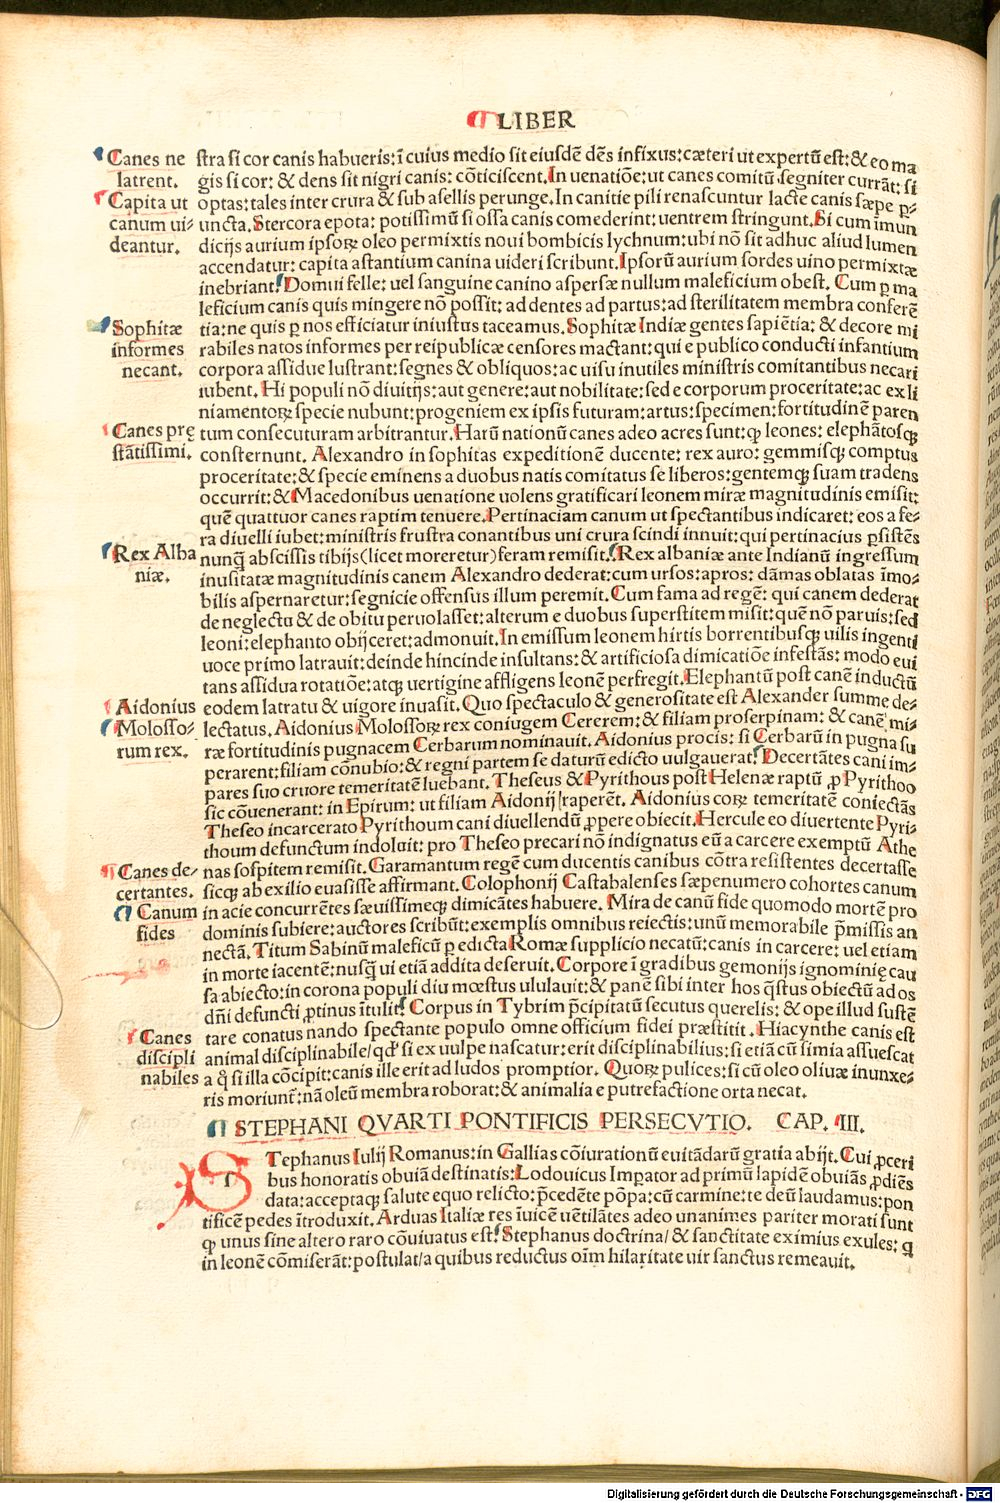 LIBER
Canes ne
latrent.
Capita ut
canum ui⸗
deantur.
Sophitæ
informes
necant.
Canes prę
stātissimi.
Rex Alba
niæ.
Aidonius
Molosso⸗
rum rex.
Canes de⸗
certantes.
Canum
fides
Canes
discipli
nabiles
stra si cor canis habueris: ī cuius medio sit eiusdē dēs infixus: cæteri ut expertū est: & eo ma
gis si cor: & dens sit nigri canis: cōticiscent. In uenatiōe: ut canes comitū segniter currāt: si
optas: tales inter crura & sub asellis perunge. In canitie pili renascuntur lacte canis sæpe ꝑ⸗
uncta. Stercora epota: potissimū si ossa canis comederint: uentrem stringunt. Si cum īmun
dicijs aurium ipsoꝝ oleo permixtis noui bombicis lychnum: ubi nō sit adhuc aliud lumen
accendatur: capita astantium canina uideri scribunt. Ipsorū aurium sordes uino permixtæ
inebriant. Domui felle: uel sanguine canino aspersæ nullum maleficium obest. Cum ꝑ ma
leficium canis quis mingere nō possit: ad dentes ad partus: ad sterilitatem membra conferē
tia: ne quis ꝑ nos efficiatur iniustus taceamus. Sophitæ Indiæ gentes sapiētia: & decore mi
rabiles natos informes per reipublicæ censores mactant: qui e publico conducti infantium
corpora assidue lustrant: segnes & obliquos: ac uisu inutiles ministris comitantibus necari
iubent. Hi populi nō diuitijs: aut genere: aut nobilitate: sed e corporum proceritate: ac ex li
niamentoꝝ specie nubunt: progeniem ex ipsis futuram: artus: specimen: fortitudinē paren
tum consecuturam arbitrantur. Harū nationū canes adeo acres sunt: ꝙ leones: elephātosqꝫ
consternunt. Alexandro in sophitas expeditionē ducente: rex auro: gemmisqꝫ comptus
proceritate: & specie eminens a duobus natis comitatus se liberos: gentemqꝫ suam tradens
occurrit: & Macedonibus uenatione uolens gratificari leonem miræ magnitudinis emisit:
quē quattuor canes raptim tenuere. Pertinaciam canum ut spectantibus indicaret: eos a fe⸗
ra diuelli iubet: ministris frustra conantibus uni crura scindi innuit: qui pertinacius ꝑsistēs
nunq̄ abscissis tibijs (licet moreretur) feram remisit. Rex albaniæ ante Indianū ingressum
inusitatæ magnitudinis canem Alexandro dederat: cum ursos: apros: dāmas oblatas īmo⸗
bilis aspernaretur: segnicie offensus illum peremit. Cum fama ad regē: qui canem dederat
de neglectu & de obitu peruolasset: alterum e duobus superstitem misit: quē nō paruis: sed
leoni: elephanto obijceret: admonuit. In emissum leonem hirtis horrentibusqꝫ uilis ingenti
uoce primo latrauit: deinde hincinde insultans: & artificiosa dimicatiōe infestās: modo eui
tans assidua rotatiōe: atqꝫ uertigine affligens leonē perfregit. Elephantū post canē inductū
eodem latratu & uigore inuasit. Quo spectaculo & generositate est Alexander summe de⸗
lectatus. Aidonius Molossoꝝ rex coniugem Cererem: & filiam proserpinam: & canē mi⸗
ræ fortitudinis pugnacem Cerbarum nominauit. Aidonius procis: si Cerbarū in pugna su
perarent: filiam cōnubio: & regni partem se daturū edicto uulgauerat. Decertātes cani im⸗
pares suo cruore temeritatē luebant. Theseus & Pyrithous post Helenæ raptū ꝓ Pyrithoo
sic cōuenerant: in Epirum: ut filiam Aidonij raperēt. Aidonius coꝝ temeritatē coniectās
Theseo incarcerato Pyrithoum cani diuellendū ꝓpere obiecit. Hercule eo diuertente Pyri⸗
thoum defunctum indoluit: pro Theseo precari nō indignatus eū a carcere exemptū Athe
nas sospitem remisit. Garamantum regē cum ducentis canibus cōtra resistentes decertasse
sicqꝫ ab exilio euasisse affirmant. Colophonij Castabalenses sæpenumero cohortes canum
in acie concurrētes sæuissimeqꝫ dimicātes habuere. Mira de canū fide quomodo mortē pro
dominis subiere: auctores scribūt: exemplis omnibus reiectis: unū memorabile p̄missis an
nectā. Titum Sabinū maleficū ꝑ edicta Romæ supplicio necatū: canis in carcere: uel etiam
in morte iacentē: nusq̄ ui etiā addita deseruit. Corpore ī gradibus gemonijs ignominię cau
sa abiecto: in corona populi diu mœstus ululauit: & panē sibi inter hos q̄stus obiectū ad os
dn̄i defuncti ꝓtinus ītulit. Corpus in Tybrim p̄cipitatū secutus querelis: & ope illud sustē
tare conatus nando spectante populo omne officium fidei præstitit. Hiacynthe canis est
animal disciplinabile/ qđ si ex uulpe nascatur: erit disciplinabilius: si etiā cū simia assuescat
a q̊ si illa cōcipit: canis ille erit ad ludos promptior. Quoꝝ pulices: si cū oleo oliuæ inunxe⸗
ris moriunt᷑: nā oleū membra roborat: & animalia e putrefactione orta necat.
STEPHANI QVARTI PONTIFICIS PERSECVTIO. CAP. III.
STephanus Iulij Romanus: in Gallias cōiurationū euitādarū gratia abijt. Cui ꝓceri
bus honoratis obuiā destinatis: Lodouicus Imꝑator ad primū lapidē obuiās ꝓdiēs
data: acceptaqꝫ salute equo relicto: p̄cedēte pōpa: cū carmine: te deū laudamus: pon
tificē pedes ītroduxit. Arduas Italiæ res īuicē uētilātes adeo unanimes pariter morati sunt
ꝙ unus sine altero raro cōuiuatus est. Stephanus doctrina/ & sanctitate eximius exules: q
in leonē cōmiserāt: postulat/ a quibus reductus oīm hilaritate uir sanctus remeauit.
Digitalisierung gefördert durch die Deutsche Forschungsgemeinschaft - DFG